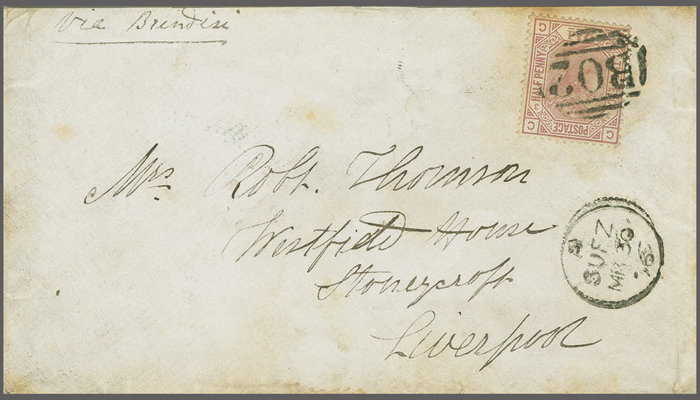 Via Brindisi
HALF PENNY
POSTAGE
C
C
C
B02
Mrs Robt. Thomson
Westfield House
Stoneycroft
Liverpool
SUEZ
MR 30